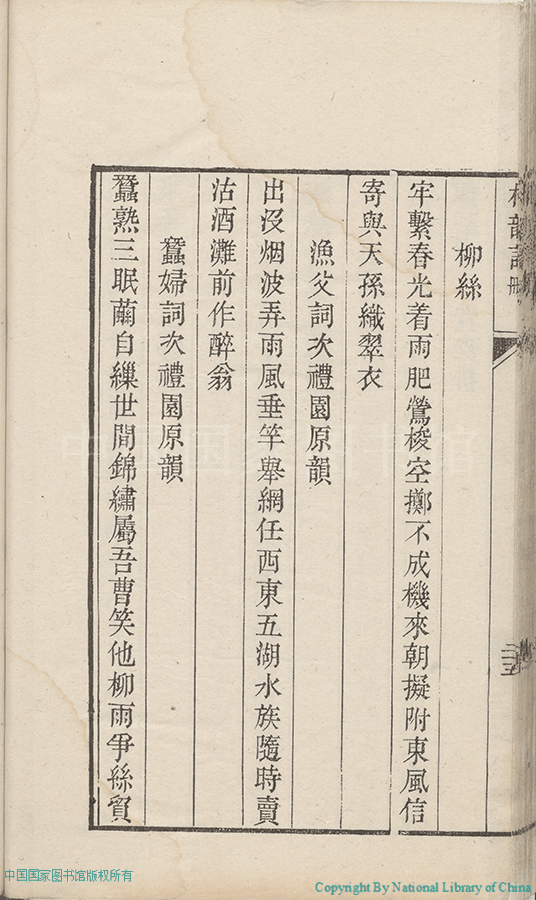 柳絲
牢繫春光着雨肥鶯梭空擲不成機來朝擬附東風信
寄與天孫織翠衣
漁父詞次禮園原韻
出沒烟波弄雨風垂竿舉網任西東五湖水族隨時賣
沽酒灘前作醉翁
蠶婦詞次禮園原韻
蠶熟三眠繭自繅世間錦繡屬吾曹笑他柳雨爭絲貿
中国国家图书馆版权所有
Copyright By National Library of China